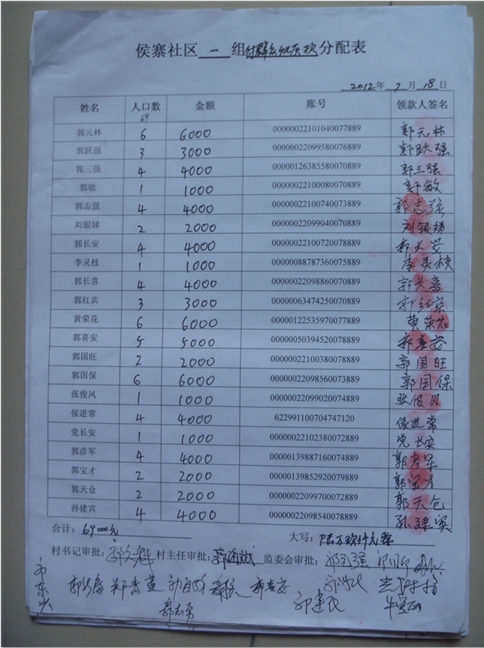 侯寨社区 一 组 分配表
2012年 7 月 18日
姓名 人口数 金额 账号 领款人签名
69
郭元林 6 6000 00000022101040077889 郭元林
郭跃强 3 3000 00000022099580076889 郭跃强
郭三强 4 4000 00000126385580070889 郭三强
郭敏 1 1000 00000022100080070889 郭敏
郭志强 4 4000 00000022100740073889 郭志强
刘银娣 2 2000 00000022099040070889 刘银娣
郭长安 4 4000 00000022100720078889 郭长安
李灵枝 1 1000 00000088787360075889 李灵枝
郭长喜 4 4000 00000022098860070889 郭长喜
郭红宾 3 3000 00000063474250070889 郭红宾
黄荣花 6 6000 00000122535970077889 黄荣花
郭喜安 5 5000 00000050394520078889 郭喜安
郭国旺 2 2000 00000022100380078889 郭国旺
郭国保 6 6000 00000022098560073889 郭国保
张俊风 1 1000 00000022099020074889 张俊风
侯进常 4 4000 622991100704747120 侯进常
党长安 1 1000 00000022102380072889 党长安
郭彦军 4 4000 00000139887160074889 郭彦军
郭宝才 2 2000 00000139852920079889 郭宝才
郭天仓 2 2000 00000022099700072889 郭天仓
孙建宾 4 4000 00000022098540078889 孙建宾
合计: 69000元 大写: 陆万玖仟元整
村书记审批: 村主任审批: 监委会审批: